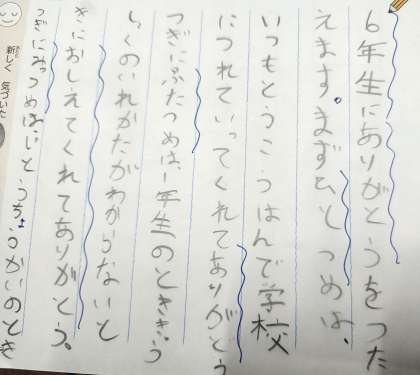 6年生にありがとうをつた
えます。まずひとつめは、
いつもとうこうはんで学校
につれていってくれてありがとう
つぎにふたつめは、1年生のときぎゅう
しょくのいれかたがわからないと
きにおしえてくれてありがとう。
つぎにみっつめは、じどうちょうかいのとき
新しく 気づいた